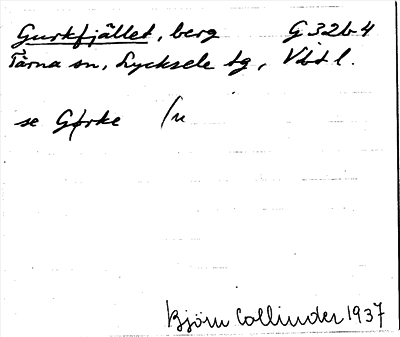 Gurkfjället, berg G 32b 4
Tärna sn, Lycksele lg, Vbtl.
se Gørke
Björn Collinder 1937